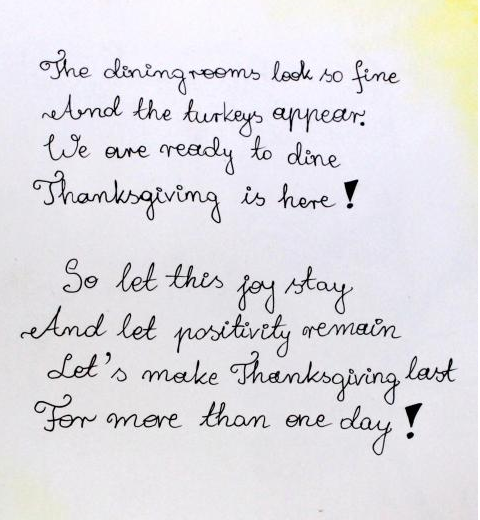 The diningrooms look so fine
And the turkeys appear.
We are ready to dine
Thanksgiving is here!
So let this joy stay
And let positivity remain
Let's make Thanksgiving last
For more than one day!